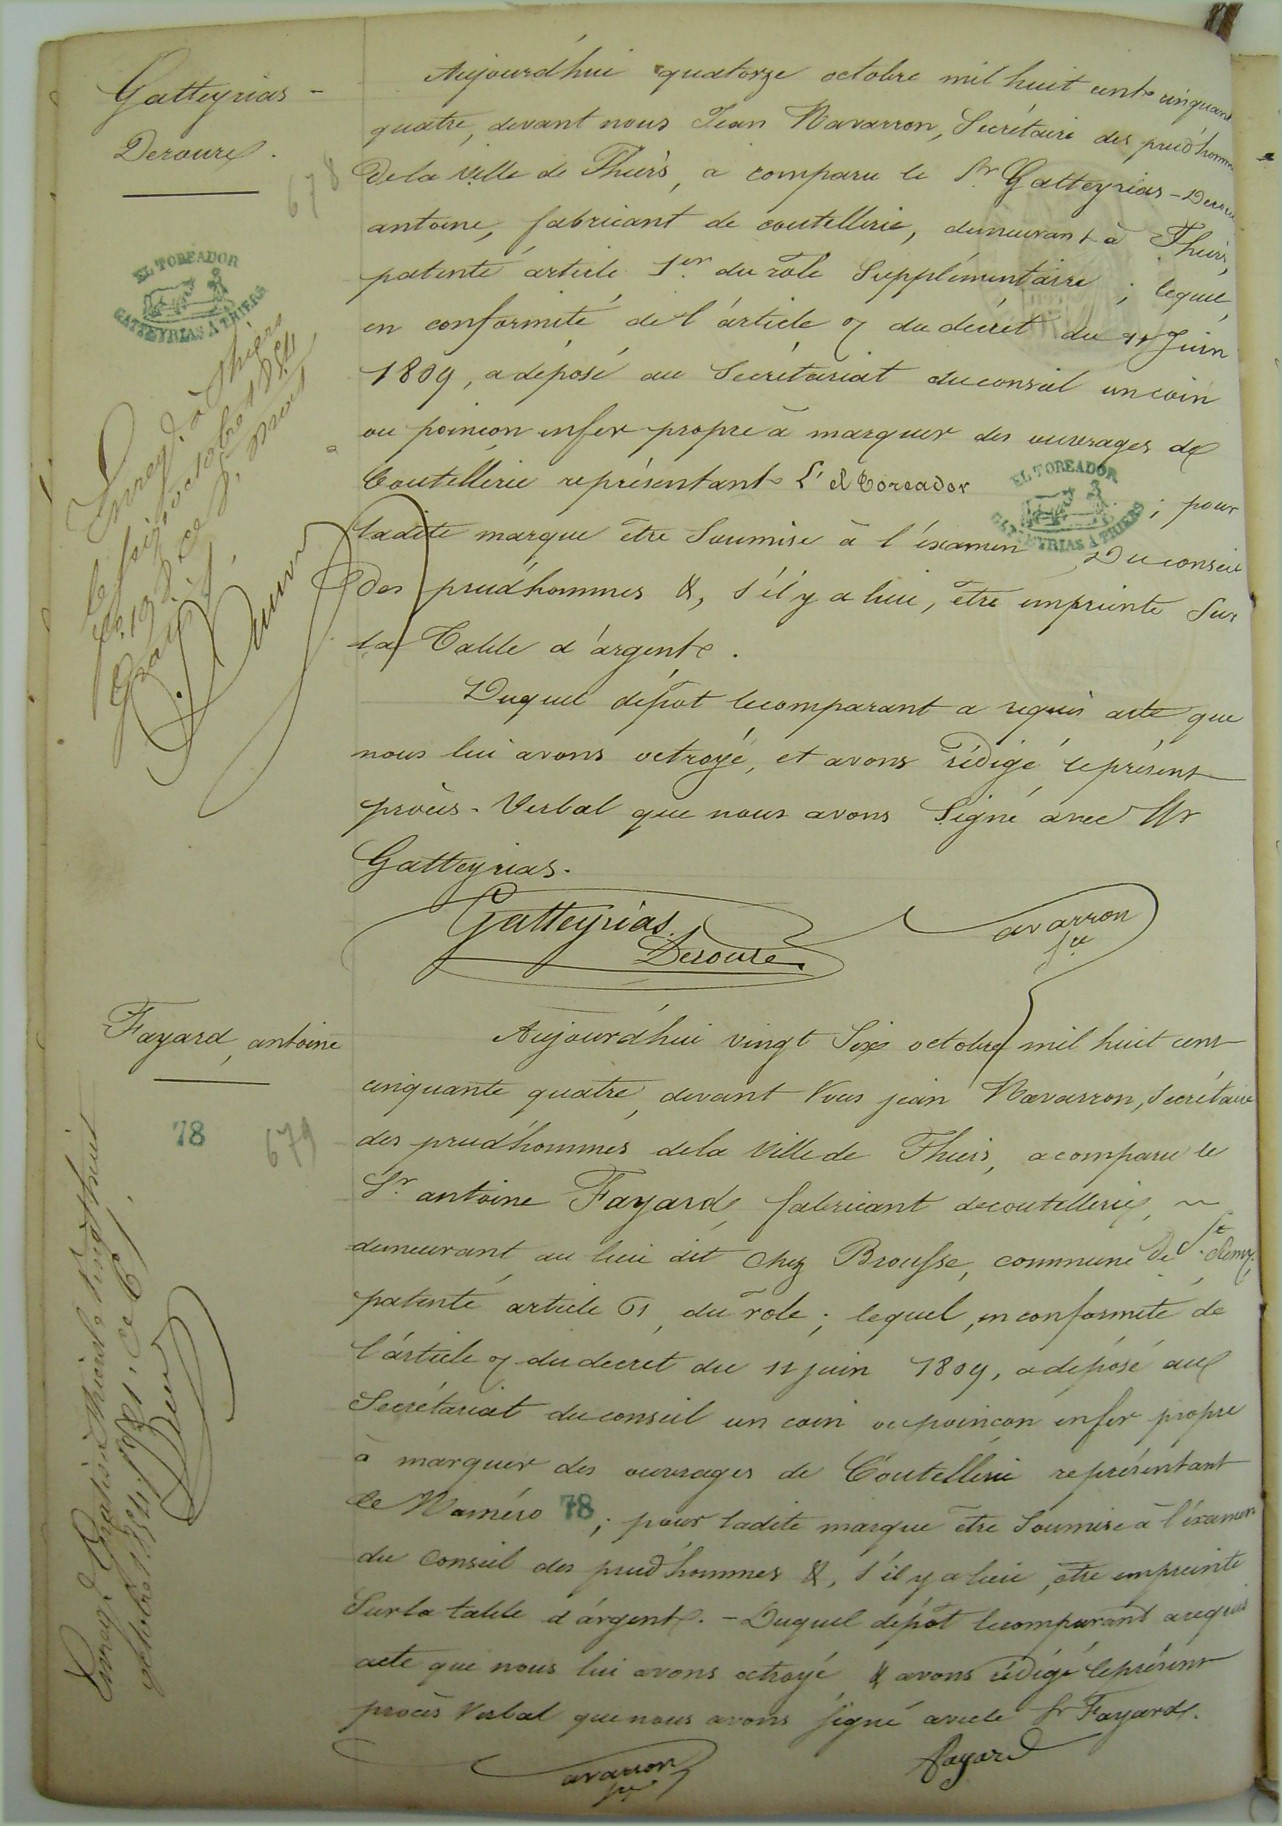 Gatteyrias -
Deroure.
678
EL TOREADOR
GATTEYRIAS À THIERS
Enreg. à Thiers
le seize octobre 1854
fo. 19
gratis.
Aujourd'hui quatorze octobre mil huit cent cinquante
quatre, devant nous Jean Navarron, Secrétaire des prud'hommes
de la ville de Thiers, a comparu le Sr Gatteyrias - Deroure
antoine, fabricant de coutellerie, demeurant à Thiers,
patenté article 1er du rôle Supplémentaire ; lequel,
en conformité de l'article 7 du décret du 11 Juin
1809, a déposé au Secrétariat du conseil un coin
ou poinçon en fer propre à marquer des ouvrages de
Coutellerie représentant L' El Toreador EL TOREADOR GATTEYRIAS À THIERS ; pour
ladite marque être Soumise à l'éxamen Du conseil
Des prud'hommes &, s'il y a lieu, être empreinte Sur
la Table d'argent.
Duquel dépôt le comparant a requis acte que
nous lui avons octroyé, et avons rédigé le présent
procès-Verbal que nous avons Signé avec Mr
Gatteyrias.
Gatteyrias
Deroure
Navarron
Sre
Fayard, antoine
78
679
Enreg. Gratis à Thiers le vingt huit
octobre 1854.
Aujourd'hui vingt Six octobre mil huit cent
cinquante quatre, devant Nous jean Navarron, Secrétaire
des prud'hommes de la Ville de Thiers, a comparu le
Sr. antoine Fayard, fabricant de coutellerie, ~
demeurant au lieu dit Chez Brousse, commune De St. Remy,
patenté article 61, du rôle ; lequel, en conformité de
l'article 7 du decret du 11 juin 1809, a déposé au
Secrétariat du conseil un coin ou poinçon en fer propre
à marquer des ouvrages de Coutellerie représentant
Le Numéro 78 ; pour ladite marque être Soumise à l'éxamen
du Conseil des prud'hommes &, s'il y a lieu, être empreinte
Sur la table d'argent. - Duquel dépôt le comparant a requis
acte que nous lui avons octroyé, & avons rédigé le présent
procès Verbal que nous avons signé avec le Sr Fayard.
Navarron
Sre
fayard